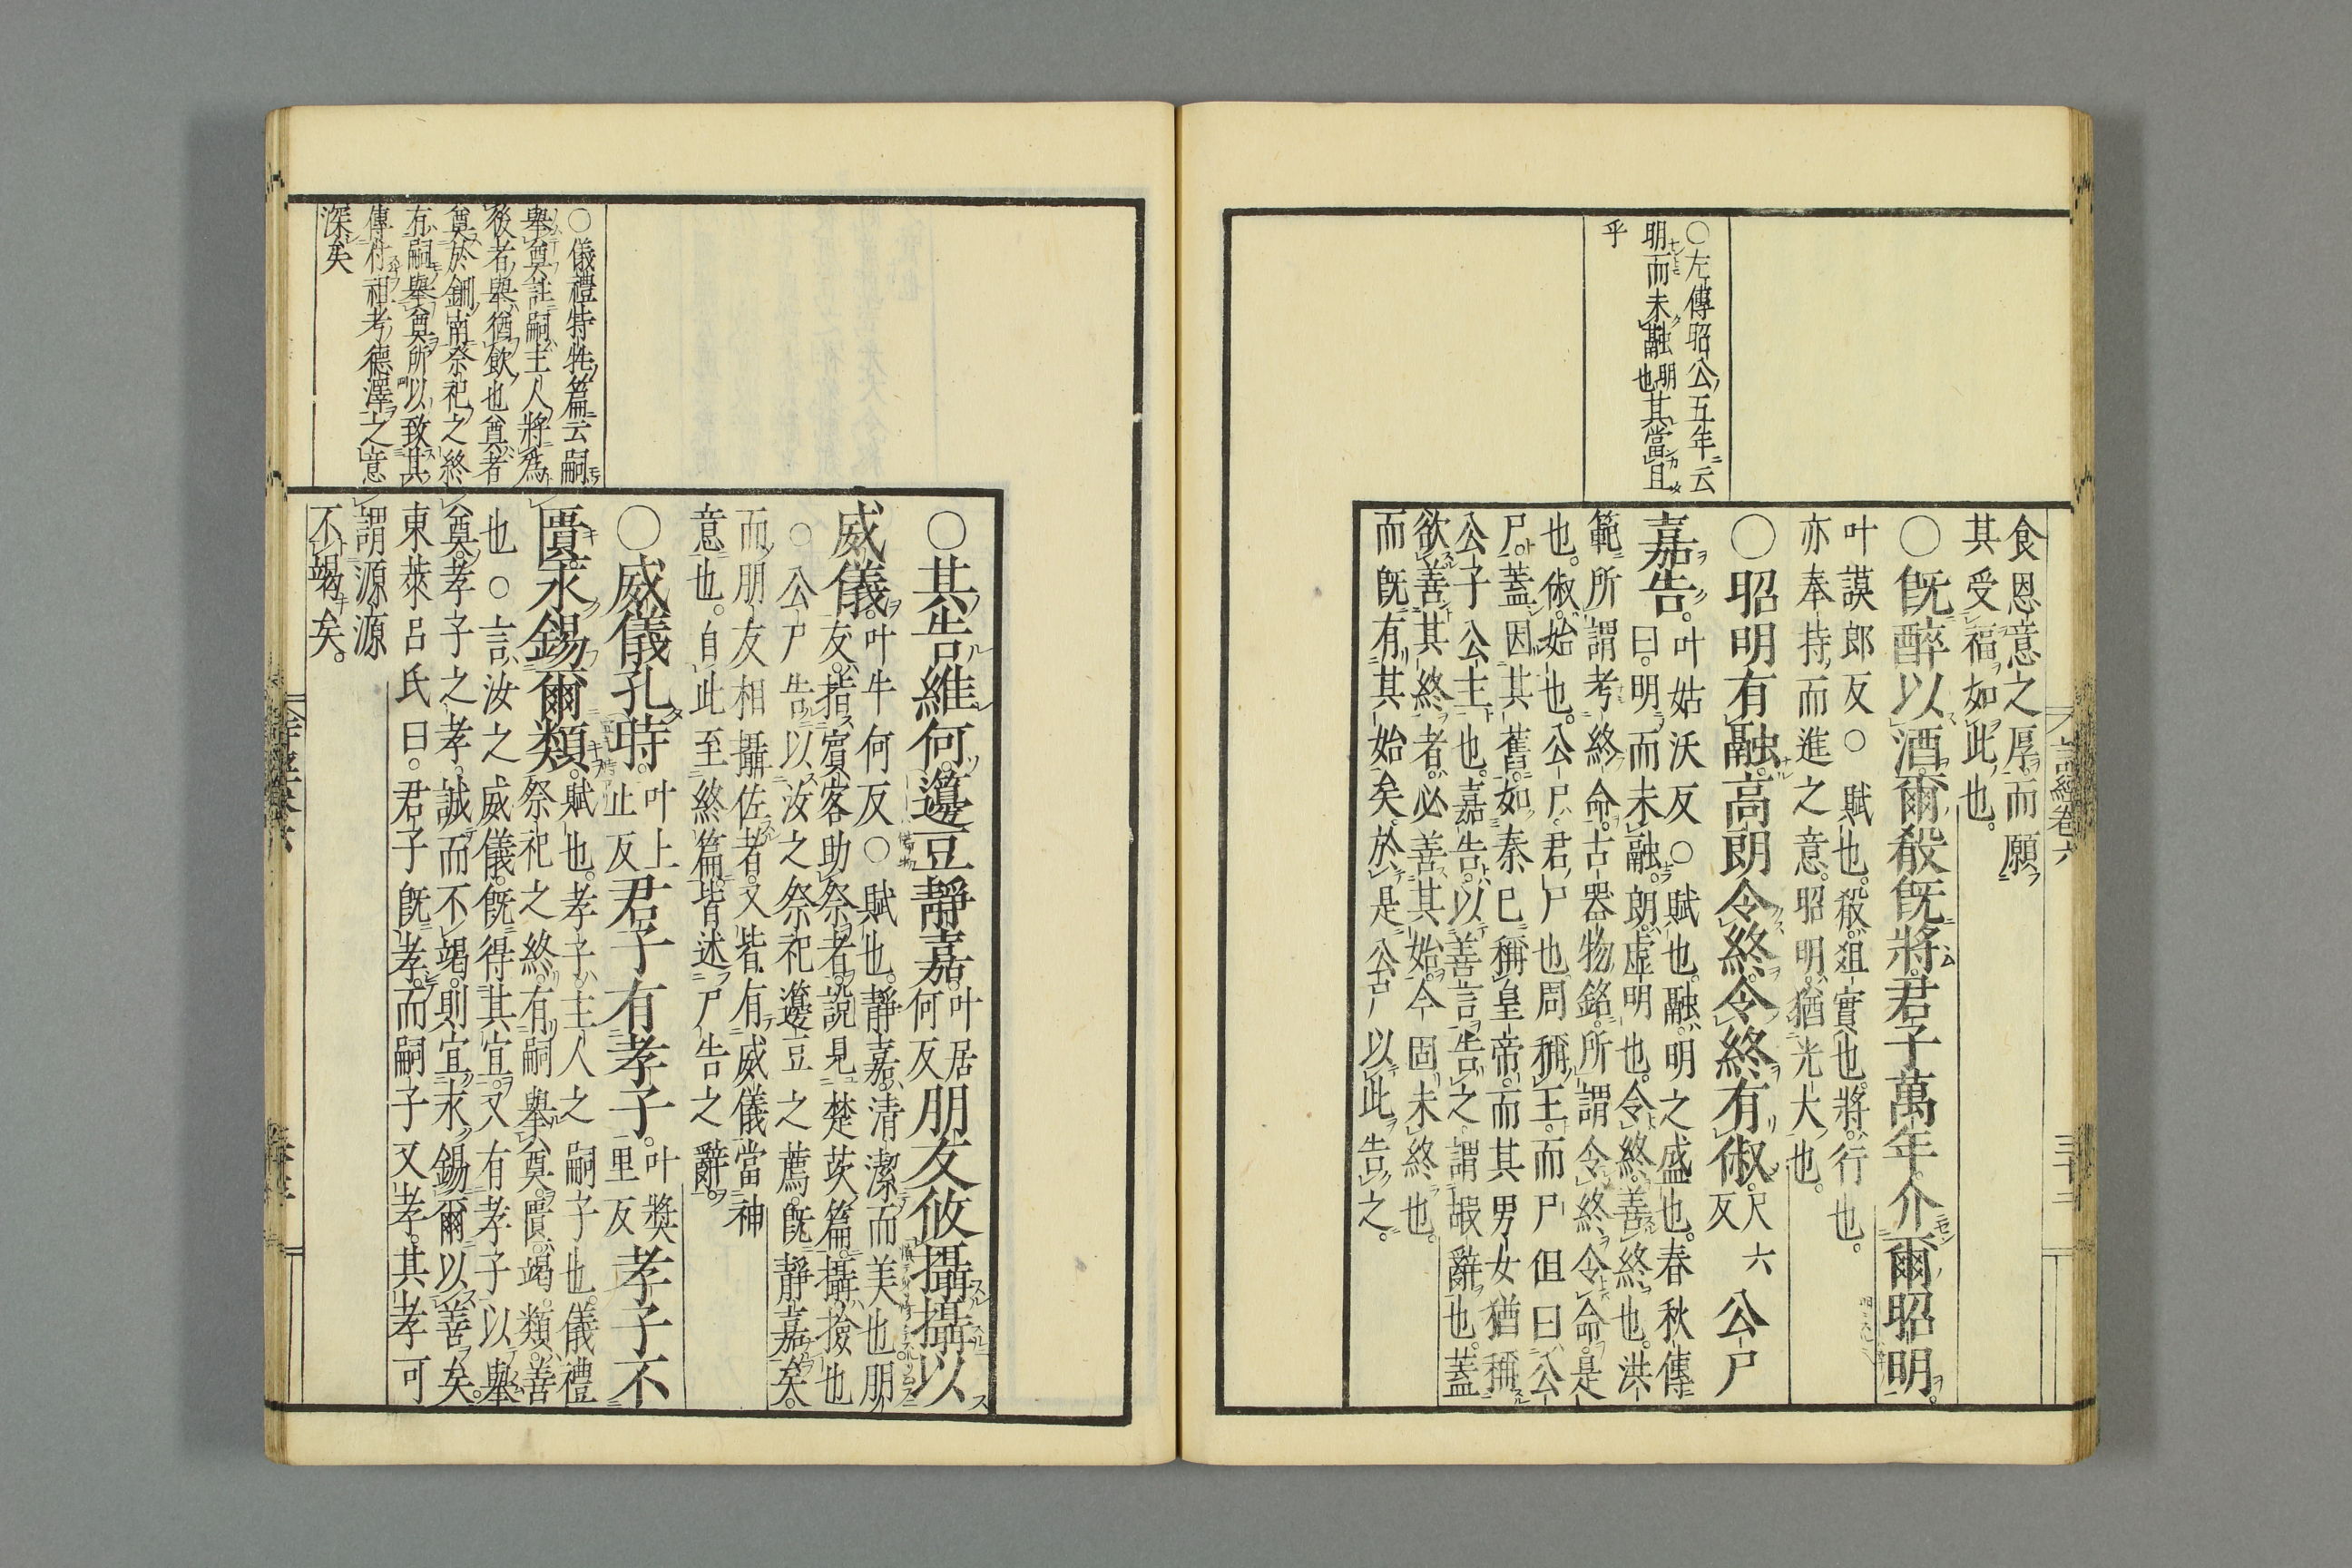 食恩意之厚而願
其受福如此也
○既醉以酒爾殽既將君子萬年介爾昭明
叶謨郎反○賦也殽俎實也將行也
亦奉持而進之意昭明猶光大也
○昭明有融高朗令終令終有俶尺六反公尸
嘉告叶姑沃反○賦也融明之盛也春秋傳
曰明而未融朗虛明也令終善終也洪
範所謂考終命古器物銘所謂令終令命是
也俶始也公尸君尸也周稱王而尸但曰公
尸蓋因其舊如秦已稱皇帝而其男女猶稱
公子公主也嘉告以善言告之謂嘏辭也蓋
欲善其終者必善其始今固未終也
而既有其始矣於是公尸以此告之
○左傳昭公五年云
明而未融明也其當旦
乎
詩經卷六
三十二
○其告維何籩豆靜嘉叶居何反朋友攸攝攝以
威儀叶牛何反○賦也靜嘉清潔而美也朋
友指賓客助祭者說見楚茨篇攝撿也
○公尸告以汝之祭祀籩豆之薦既靜嘉矣
而朋友相攝佐者又皆有威儀當神
意也自此至終篇皆述尸告之辭
○威儀孔時叶上止反君子有孝子叶奬里反孝子不
匱永錫爾類賦也孝子主人之嗣子也儀禮
祭祀之終有嗣舉奠匱竭類善
也○言汝之威儀既得其宜又有孝子以舉
奠孝子之孝誠而不竭則宜永錫爾以善矣
東萊呂氏曰君子既孝而嗣子又孝其孝可
謂源源
不竭矣
○儀禮特牲篇云嗣
舉奠註嗣主人將爲
後者舉猶飲也奠者
奠於鉶南祭祀之終
有嗣舉奠所以致其
傳付祖考德澤之意
深矣